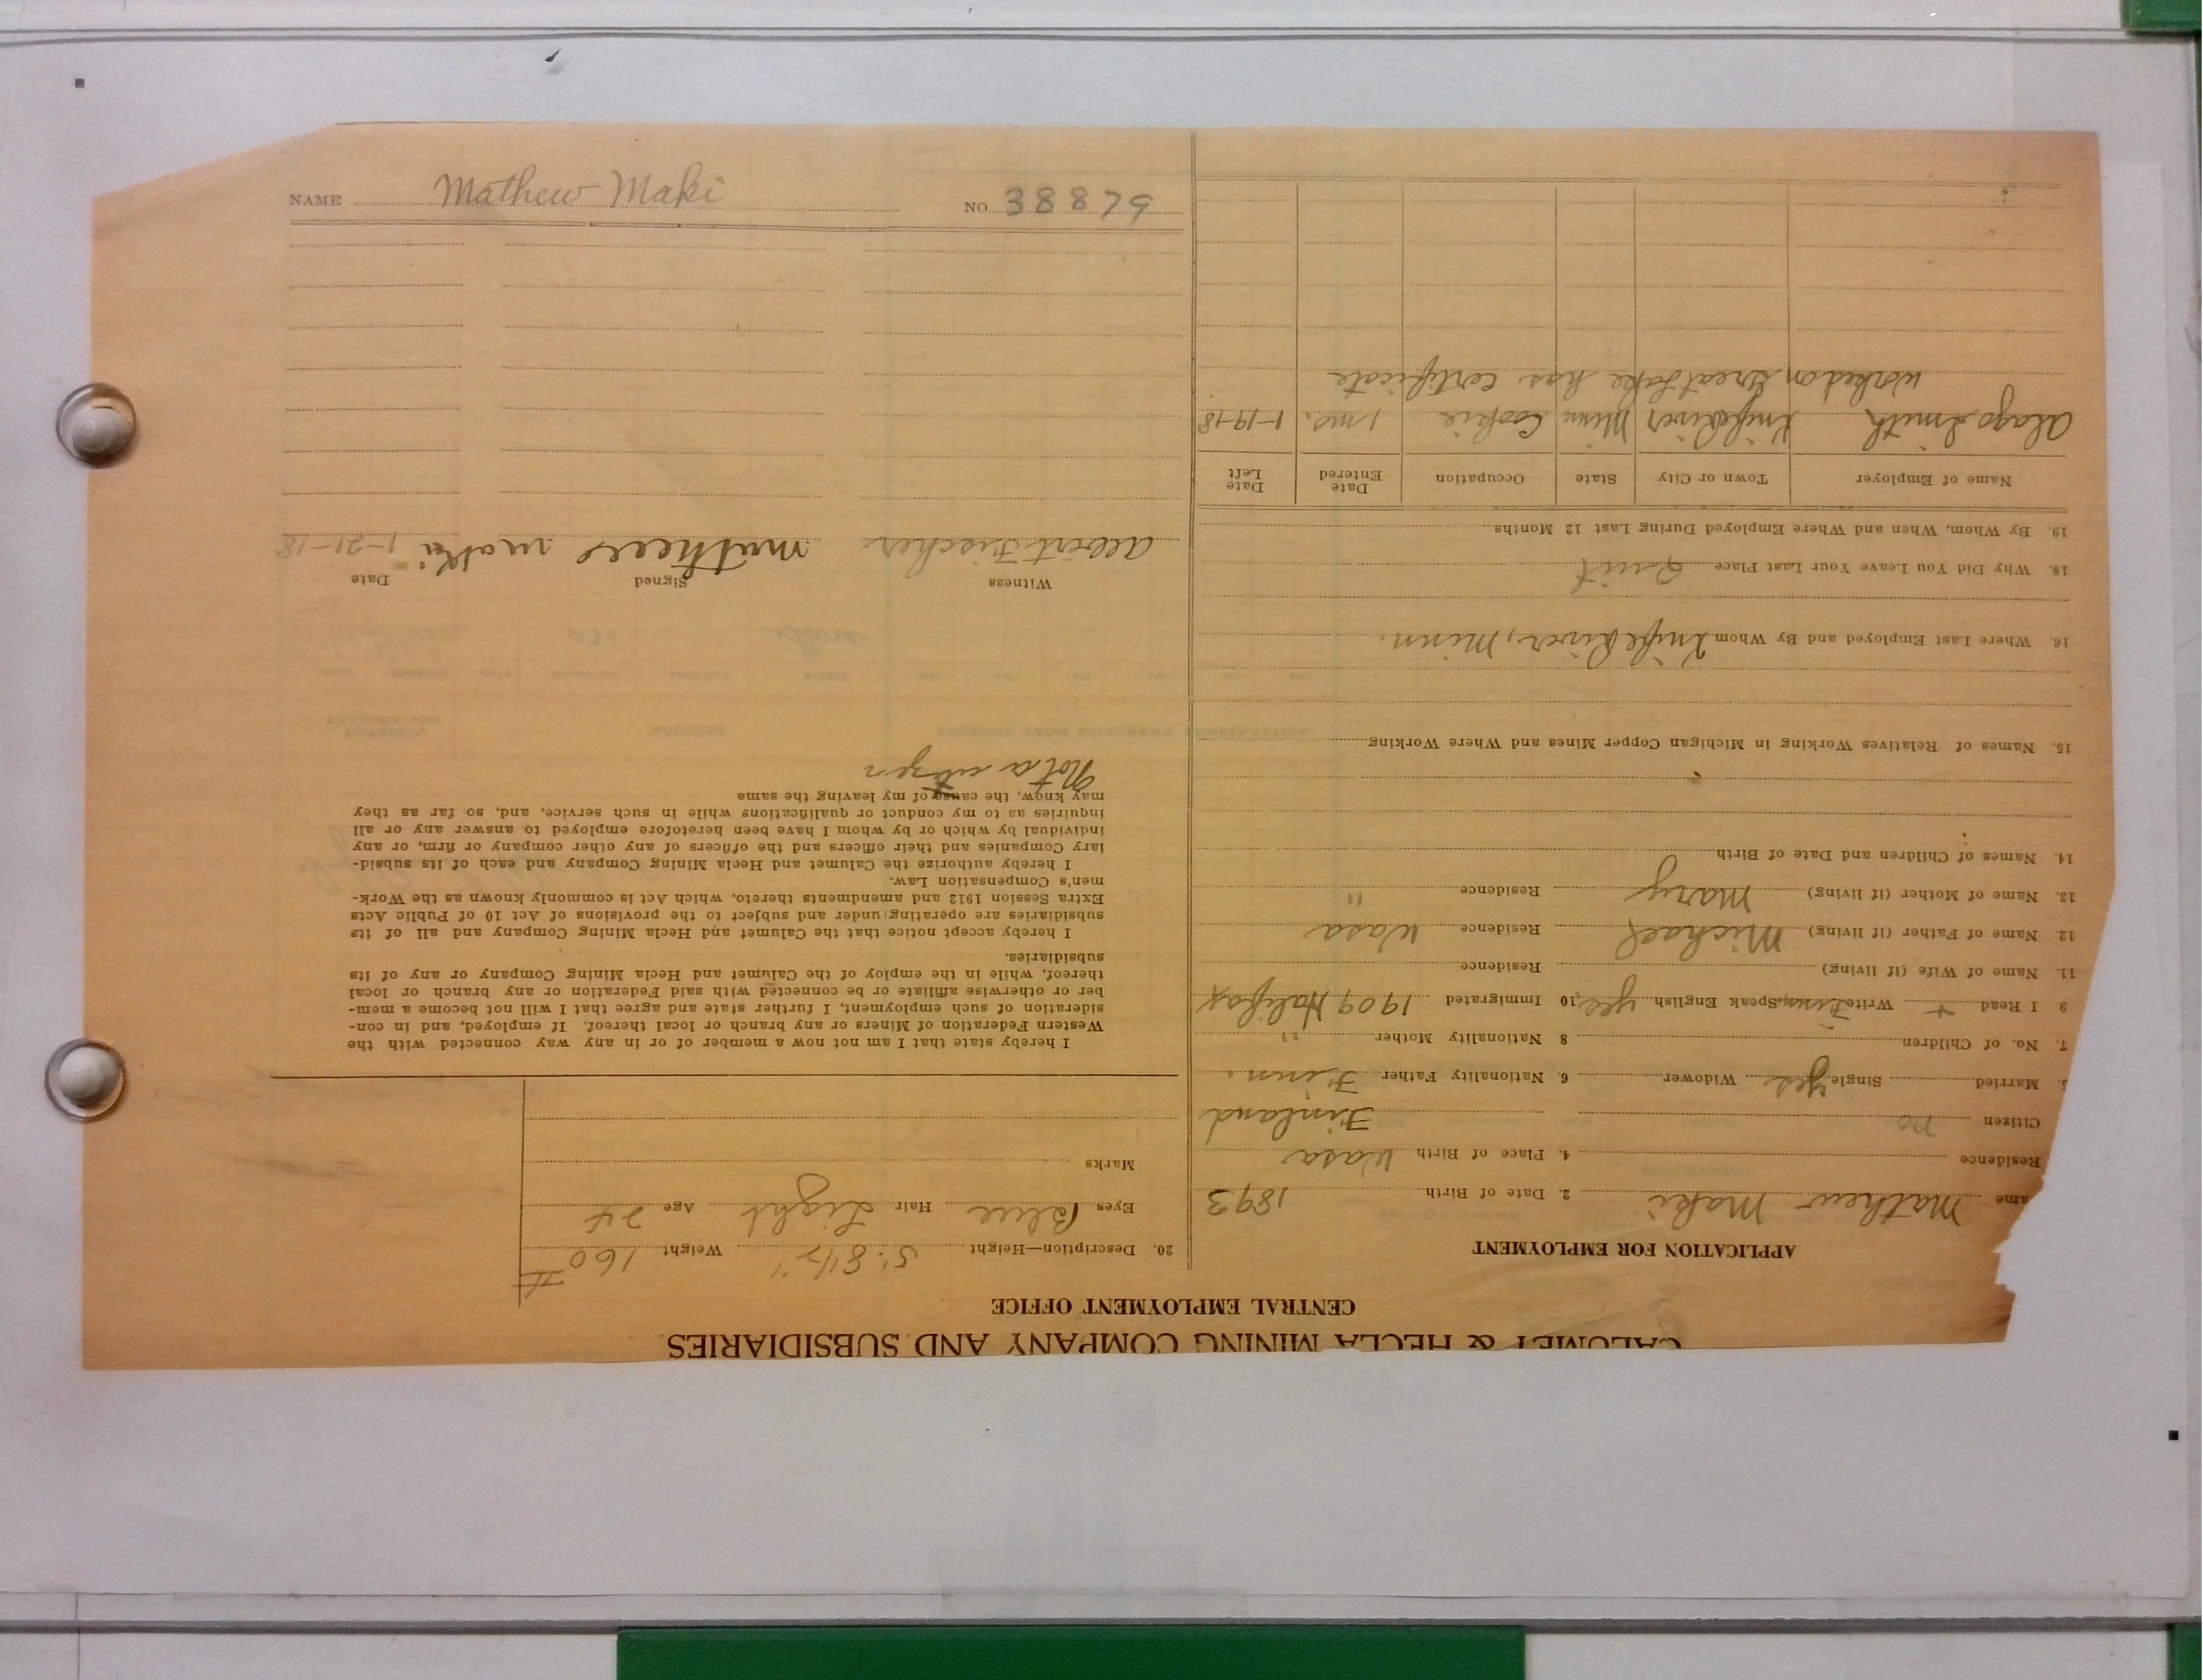 CALUMET & HECLA MINING COMPANY AND SUBSIDIARIES
CENTRAL EMPLOYMENT OFFICE
APPLICATION FOR EMPLOYMENT
ame Mathew Maki 2. Date of Birth 1893
Residence 4. Place of Birth Wasa
Citizen no Finland
Married Single yes Widower 6. Nationality Father Finn.
7. No. of Children 8 Nationality Mother "
9 I Read + Write Finn, Speak English yes, 10 Immigrated 1909 Halifax
11. Name of Wife (if living) Residence
12. Name of Father (if living) Michael Residence Wasa
13. Name of Mother (if living) Mary Residence "
14. Names of Children and Date of Birth
15. Names of Relatives Working in Michigan Copper Mines and Where Working
16. Where Last Employed and By Whom Knife River, Minn.
18. Why Did You Leave Your Last Place Quit
19. By Whom, When and Where Employed During Last 12 Months
Name of Employer Town or City State Occupation Date Entered Date Left
Smith Knife River Minn Cookie 1 mo. 1-19-18
Worked on Great Lake has certificate
20. Description—Height 5' 8 1/2" Weight 160 #
Eyes Blue Hair Light Age 24
Marks
I hereby state that I am not now a member of or in any way connected with the
Western Federation of Miners or any branch or local thereof. If employed, and in con-
sideration of such employment, I further state and agree that I will not become a mem-
ber or otherwise affiliate or be connected with said Federation or any branch or local
thereof, while in the employ of the Calumet and Hecla Mining Company or any of its
subsidiaries.
I hereby accept notice that the Calumet and Hecla Mining Company and all of its
subsidiaries are operating under and subject to the provisions of Act 10 of Public Acts
Extra Session 1912 and amendments thereto, which Act is commonly known as the Work-
men's Compensation Law.
I hereby authorize the Calumet and Hecla Mining Company and each of its subsid-
iary Companies and their officers and the officers of any other company or firm, or any
individual by which or by whom I have been heretofore employed to answer any or all
inquiries as to my conduct or qualifications while in such service, and, so far as they
may know, the cause of my leaving the same
Not a citizen
Witness Signed Date
Albert Fischer mathew maki 1-21-18
NAME Mathew Maki NO. 38879